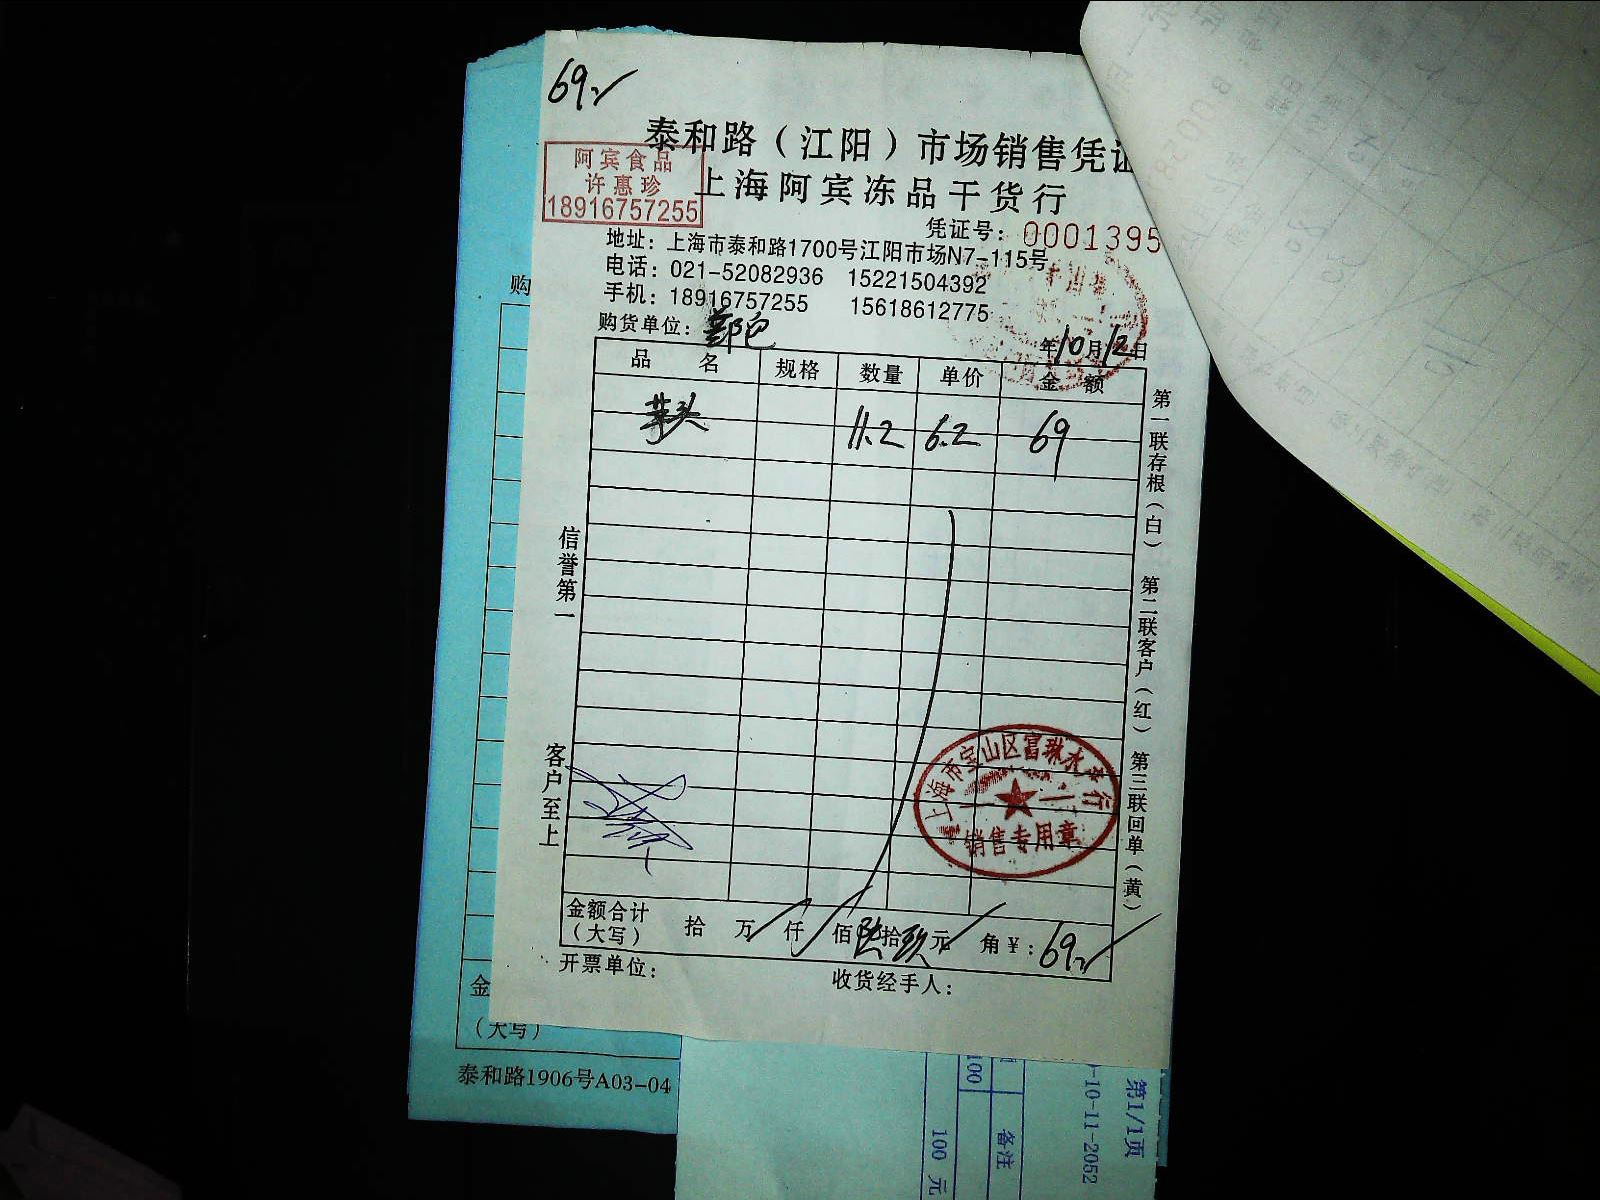 69✓
泰和路（江阳）市场销售凭证
阿宾食品
许惠珍
18916757255
上海阿宾冻品干货行
凭证号：0001395
地址：上海市泰和路1700号江阳市场N7-115号
电话：021-52082936 15221504392
手机：18916757255 15618612775
购货单位：
年10月12日
品名 规格 数量 单价 金额
芋头 11.2 6.2 69
第一联存根（白） 第二联客户（红） 第三联回单（黄）
信誉第一
客户至上
上海市宝山区富琳水产行
销售专用章
金额合计
（大写） 拾 万 仟 佰 陆拾玖元 角 ¥：69
开票单位：
收货经手人：
购
金
（大写）
泰和路1906号A03-04
100
100 元
备注
-10-11-2052
第1/1页